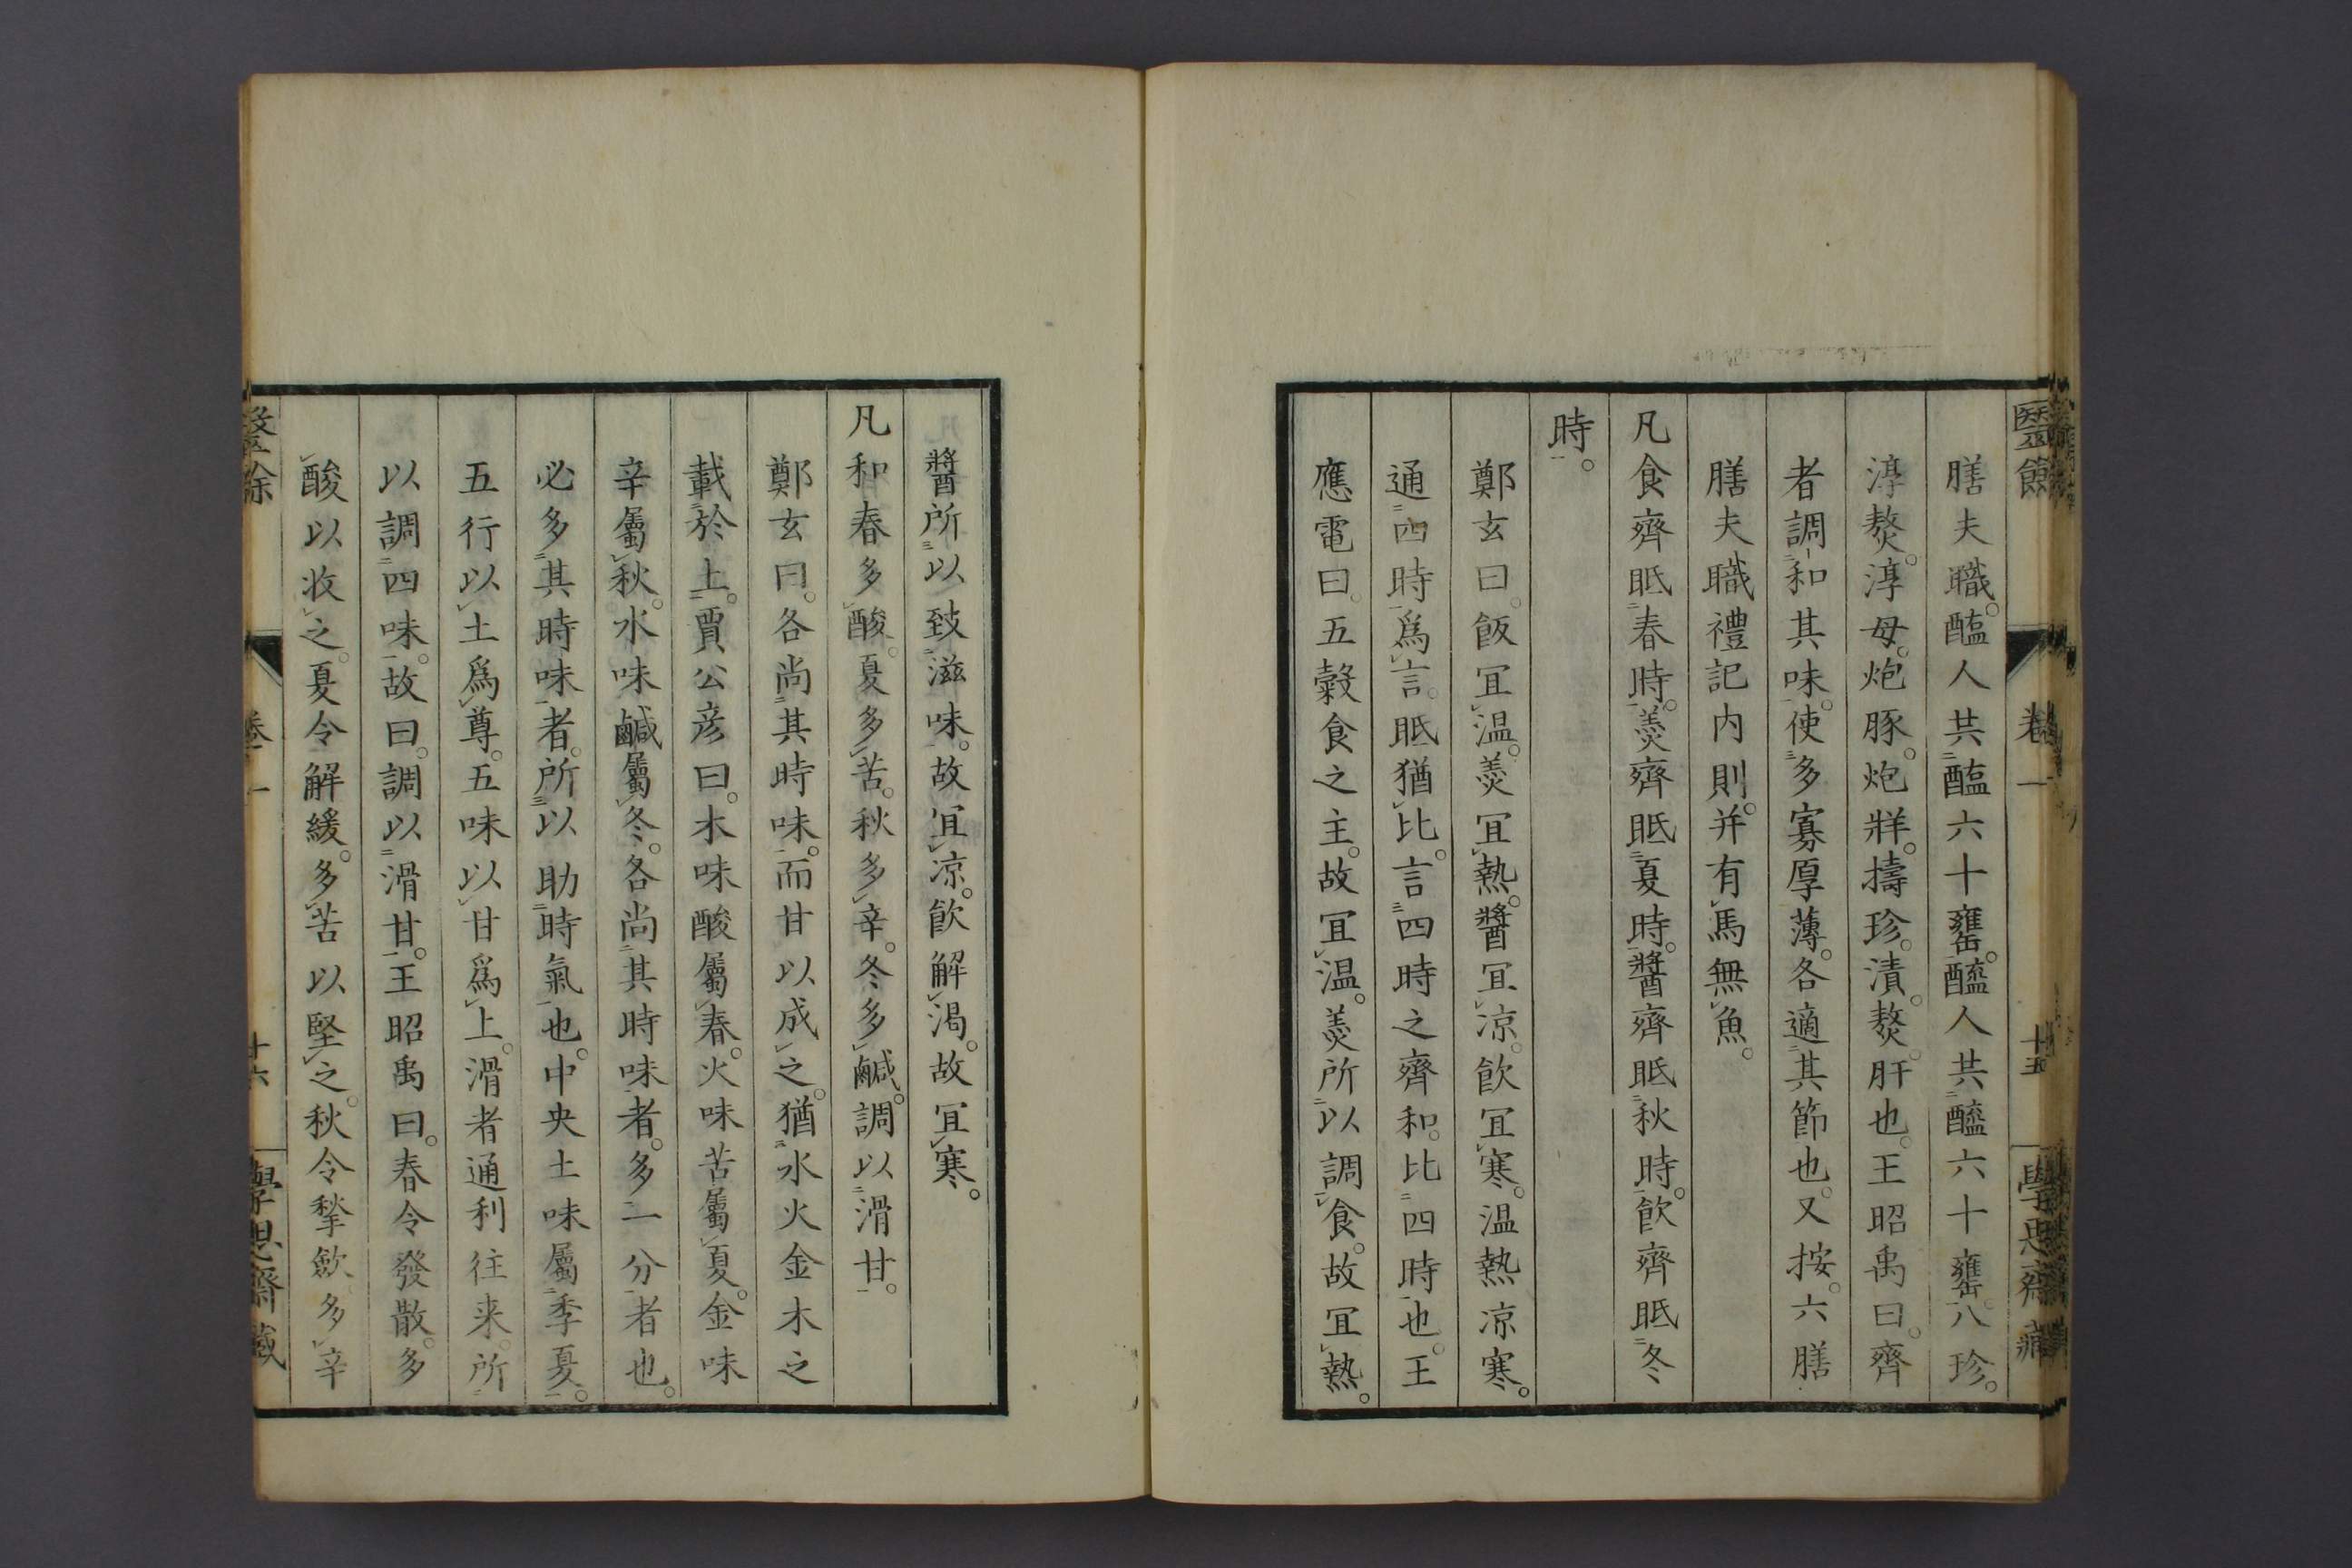 膳夫職。醢人共醢六十罋。醯人共醯六十罋。八珍。
淳熬。淳母。炮豚。炮牂。擣珍。漬。熬。肝也。王昭禹曰。齊
者調和其味。使多寡厚薄。各適其節也。又按。六膳
膳夫職禮記内則。并有馬無魚。
凡食齊眡春時。羹齊眡夏時。醬齊眡秋時。飲齊眡冬
時。
鄭玄曰。飯冝温。羹冝熱。醬冝凉。飲冝寒。温熱凉寒。
通四時爲言。眡猶比。言四時之齊和。比四時也。王
應電曰。五穀食之主。故冝温。羹所以調食。故冝熱。
醫餘 卷一 十五 學思齋藏
醬所以致滋味。故冝凉。飲解渇。故冝寒。
凡和春多酸。夏多苦。秋多辛。冬多鹹。調以滑甘。
鄭玄曰。各尚其時味。而甘以成之。猶水火金木之
載於土。賈公彦曰。木味酸屬春。火味苦屬夏。金味
辛屬秋。水味鹹屬冬。各尚其時味者。多一分者也。
必多其時味者。所以助時氣也。中央土味屬季夏。
五行以土爲尊。五味以甘爲上。滑者通利往来。所
以調四味。故曰。調以滑甘。王昭禹曰。春令發散。多
酸以收之。夏令解緩。多苦以堅之。秋令揫歛。多辛
醫餘 卷一 十六 學思齋藏